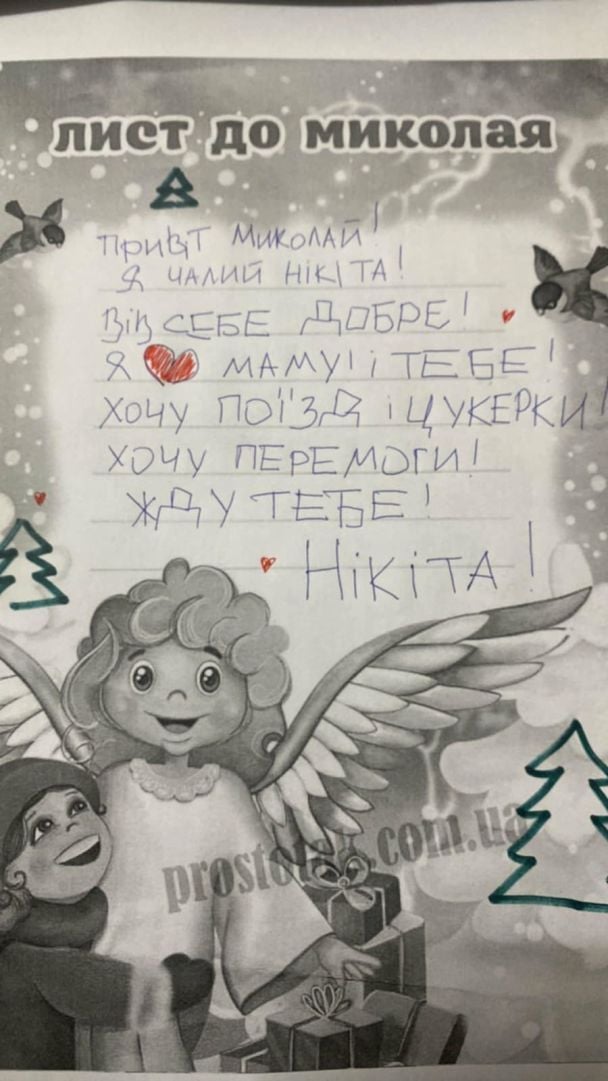 ЛИСТ ДО МИКОЛАЯ
ПРИВІТ МИКОЛАЙ!
Я ЧАЛИЙ НІКІТА!
ВІВ СЕБЕ ДОБРЕ!
Я ❤ МАМУ! і ТЕБЕ!
ХОЧУ ПОЇЗД і ЦУКЕРКИ!
ХОЧУ ПЕРЕМОГИ!
ЖДУ ТЕБЕ!
НІКІТА!
.com.ua